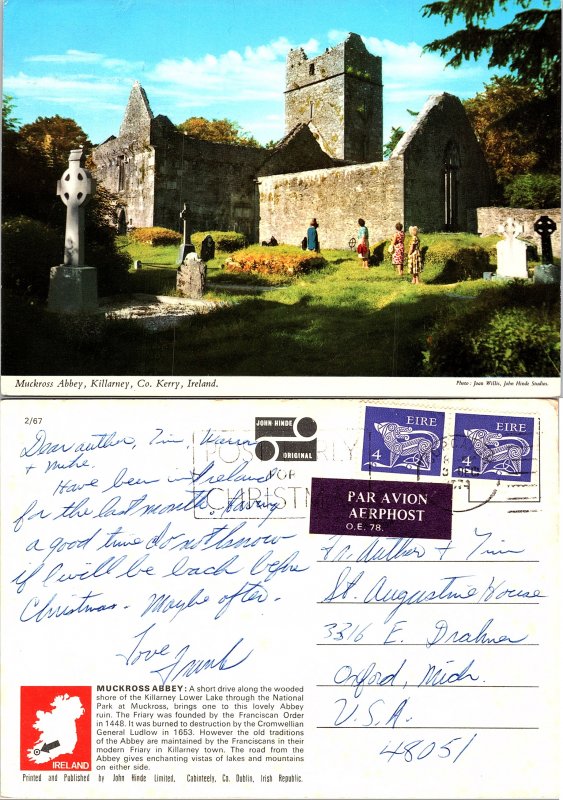 Muckross Abbey, Killarney, Co. Kerry, Ireland.
Photo: Joan Willis, John Hinde Studios.
2/67
JOHN HINDE
ORIGINAL
POST EARLY
FOR
CHRISTMAS
EIRE
4
EIRE
4
PAR AVION
AERPHOST
O.E. 78.
Dear Arthur, Tim, Warren
+ Mike.
Have been in Ireland
for the last month, having
a good time do not know
if I will be back before
Christmas. Maybe after.
Love
Frank
Fr. Arthur + Tim
St. Augustine House
3316 E. Drahner
Oxford, Mich.
U.S.A.
48051
MUCKROSS ABBEY: A short drive along the wooded
shore of the Killarney Lower Lake through the National
Park at Muckross, brings one to this lovely Abbey
ruin. The Friary was founded by the Franciscan Order
in 1448. It was burned to destruction by the Cromwellian
General Ludlow in 1653. However the old traditions
of the Abbey are maintained by the Franciscans in their
modern Friary in Killarney town. The road from the
Abbey gives enchanting vistas of lakes and mountains
on either side.
IRELAND
Printed and Published by John Hinde Limited, Cabinteely, Co. Dublin, Irish Republic.